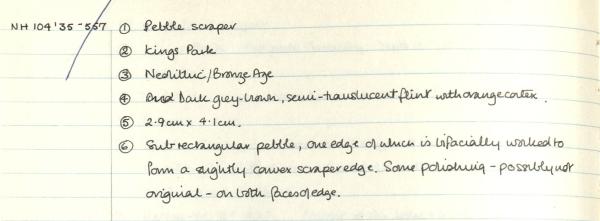 NH 104'35-557 ① Pebble scraper
② Kings Park
③ Neolithic/Bronze Age
④ Dark grey-brown, semi-translucent flint with orange cortex.
⑤ 2.9cm x 4.1cm.
⑥ Sub rectangular pebble, one edge of which is bifacially worked to
form a slightly convex scraper edge. Some polishing - possibly not
original - on both faces of edge.